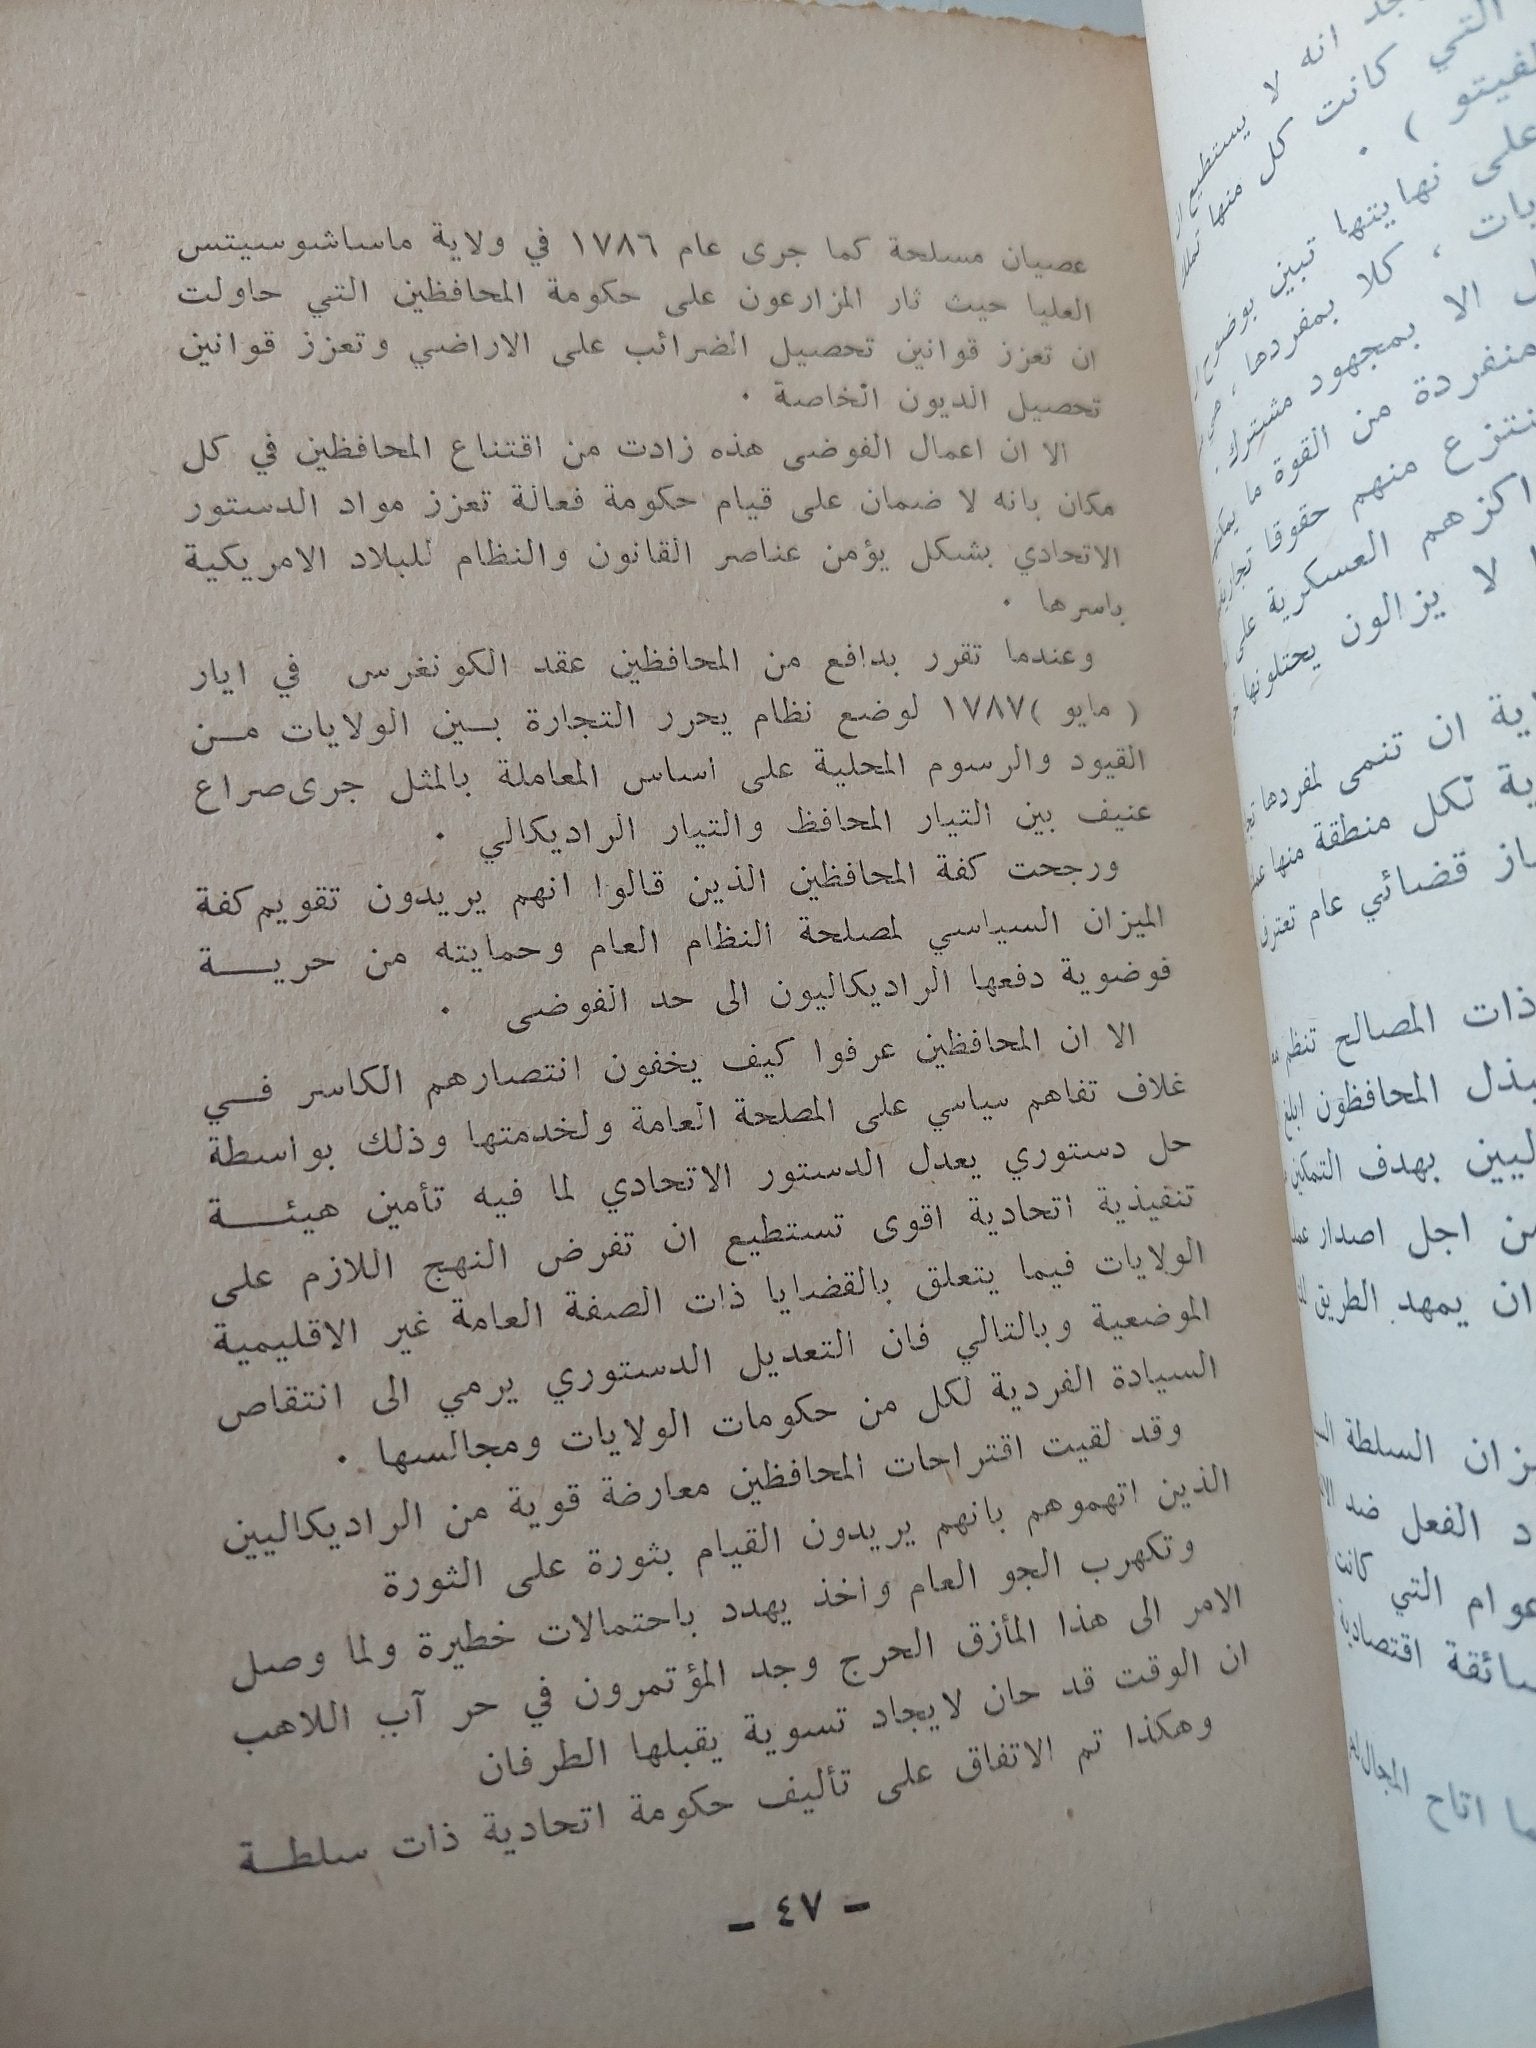 عصيان مسلحة كما جرى عام ١٧٨٦ في ولاية ماساشوسيتس
العليا حيث ثار المزارعون على حكومة المحافظين التي حاولت
ان تعزز قوانين تحصيل الضرائب على الاراضي وتعزز قوانين
تحصيل الديون الخاصة .
الا ان اعمال الفوضى هذه زادت من اقتناع المحافظين في كل
مكان بانه لا ضمان على قيام حكومة فعالة تعزز مواد الدستور
الاتحادي بشكل يؤمن عناصر القانون والنظام للبلاد الامريكية
باسرها .
وعندما تقرر بدافع من المحافظين عقد الكونغرس في ايار
( مايو )١٧٨٧ لوضع نظام يحرر التجارة بين الولايات من
القيود والرسوم المحلية على اساس المعاملة بالمثل جرى صراع
عنيف بين التيار المحافظ والتيار الراديكالي .
ورجحت كفة المحافظين الذين قالوا انهم يريدون تقويم كفة
الميزان السياسي لمصلحة النظام العام وحمايته من حرية
فوضوية دفعها الراديكاليون الى حد الفوضى .
الا ان المحافظين عرفوا كيف يخفون انتصارهم الكاسر في
غلاف تفاهم سياسي على المصلحة العامة ولخدمتها وذلك بواسطة
حل دستوري يعدل الدستور الاتحادي لما فيه تأمين هيئة
تنفيذية اتحادية اقوى تستطيع ان تفرض النهج اللازم على
الولايات فيما يتعلق بالقضايا ذات الصفة العامة غير الاقليمية
الموضعية وبالتالي فان التعديل الدستوري يرمي الى انتقاص
السيادة الفردية لكل من حكومات الولايات ومجالسها .
وقد لقيت اقتراحات المحافظين معارضة قوية من الراديكاليين
الذين اتهموهم بانهم يريدون القيام بثورة على الثورة
وتكهرب الجو العام واخذ يهدد باحتمالات خطيرة ولما وصل
الامر الى هذا المأزق الحرج وجد المؤتمرون في حر آب اللاهب
ان الوقت قد حان لايجاد تسوية يقبلها الطرفان
وهكذا تم الاتفاق على تأليف حكومة اتحادية ذات سلطة
- ٤٧ -
انه لا يستطيع
التي كانت كل منها
لفيتو ) .
على نهايتها تبين بوضوح
كلا بمفردها ،
الا بمجهود مشترك .
منفردة من القوة ما
منهم حقوقا
العسكرية على
لا يزالون يحتلونها
ان تنمى لمفردها
لكل منطقة منها
قضائي عام
ذات المصالح تنظم
المحافظون
بهدف التمكين
اجل اصدار
ان يمهد الطريق
السلطة
الفعل ضد
التي كانت
اتاح المجال